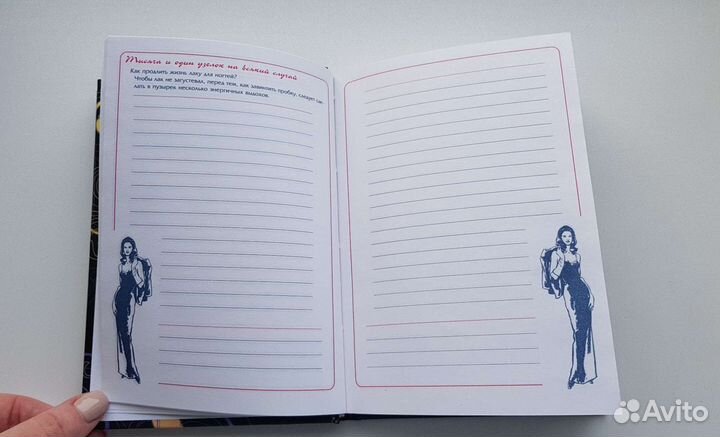 Тысяча и один узелок на всякий случай
Как продлить жизнь лаку для ногтей?
Чтобы лак не загустевал, перед тем, как завинтить пробку, следует сде-
лать в пузырек несколько энергичных выдохов.
Avito